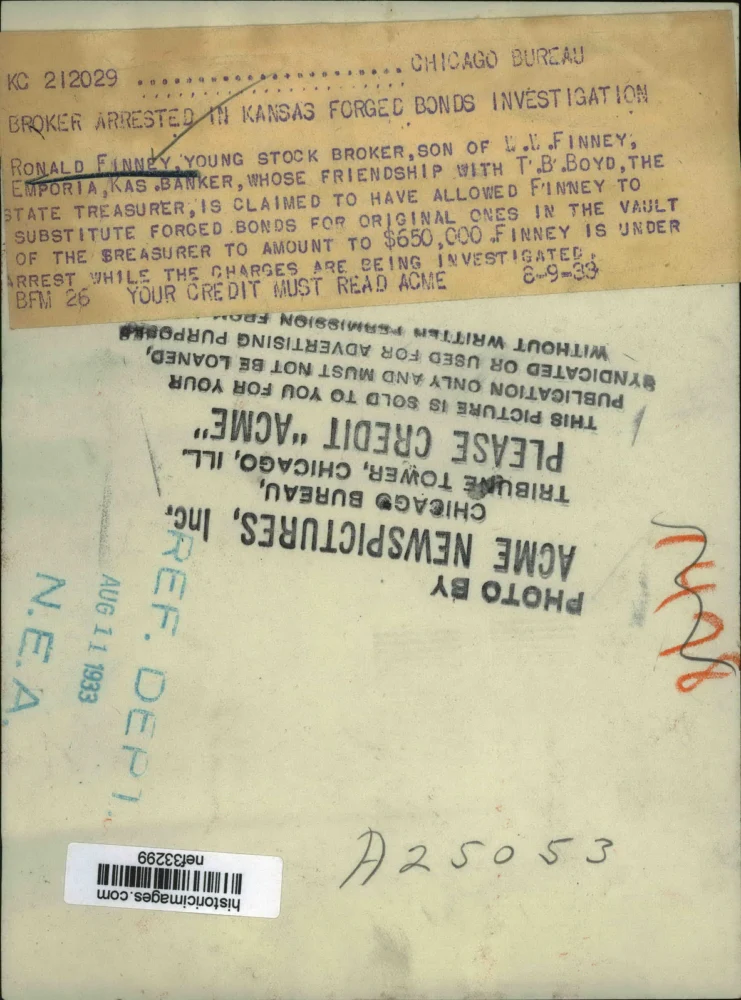 KC 212029 ........................ CHICAGO BUREAU
BROKER ARRESTED IN KANSAS FORGED BONDS INVESTIGATION
RONALD FINNEY, YOUNG STOCK BROKER, SON OF W.W. FINNEY,
EMPORIA, KAS. BANKER, WHOSE FRIENDSHIP WITH T.B. BOYD, THE
STATE TREASURER, IS CLAIMED TO HAVE ALLOWED FINNEY TO
SUBSTITUTE FORGED BONDS FOR ORIGINAL ONES IN THE VAULT
OF THE $REASURER TO AMOUNT TO $650,000. FINNEY IS UNDER
ARREST WHILE THE CHARGES ARE BEING INVESTIGATED.
BFM 26 YOUR CREDIT MUST READ ACME 8-9-33
PHOTO BY
ACME NEWSPICTURES, Inc.
CHICAGO BUREAU,
TRIBUNE TOWER, CHICAGO, ILL.
PLEASE CREDIT "ACME"
THIS PICTURE IS SOLD TO YOU FOR YOUR
PUBLICATION ONLY AND MUST NOT BE LOANED,
SYNDICATED OR USED FOR ADVERTISING PURPOSES
WITHOUT WRITTEN PERMISSION FROM
REF. DEPT.
AUG 11 1933
N.E.A.
A25053
historicimages.com
nef33299